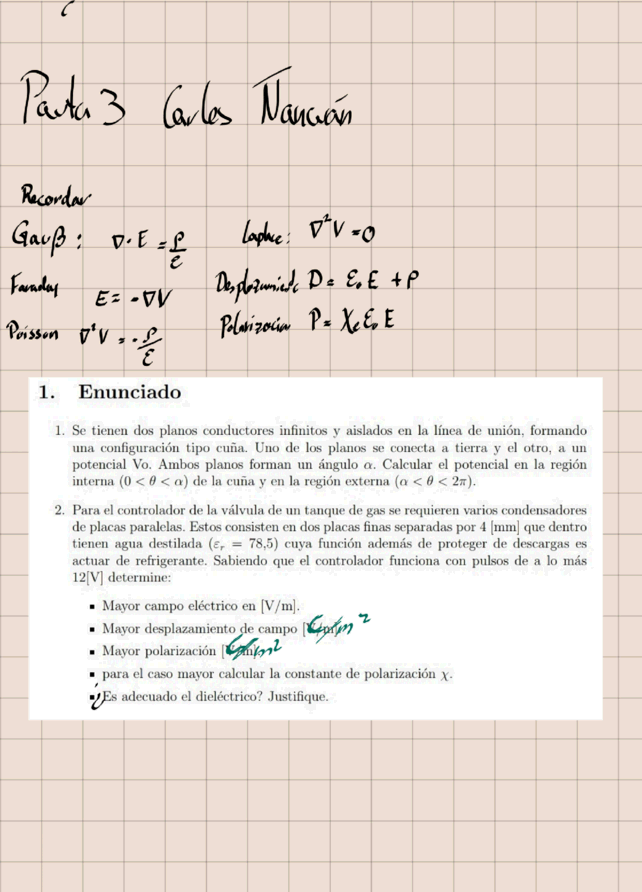 Pauta 3 Carlos
Recordar
Gauß: ∇·E = ρ/ε
Laplace: ∇²V = 0
Faraday E = -∇V
Desplazamiento D = ε₀E + P
Poisson ∇²V = -ρ/ε
Polarización P = χₑ ε₀ E
1. Enunciado
1. Se tienen dos planos conductores infinitos y aislados en la línea de unión, formando
una configuración tipo cuña. Uno de los planos se conecta a tierra y el otro, a un
potencial Vo. Ambos planos forman un ángulo α. Calcular el potencial en la región
interna (0 < θ < α) de la cuña y en la región externa (α < θ < 2π).
2. Para el controlador de la válvula de un tanque de gas se requieren varios condensadores
de placas paralelas. Estos consisten en dos placas finas separadas por 4 [mm] que dentro
tienen agua destilada (εr = 78,5) cuya función además de proteger de descargas es
actuar de refrigerante. Sabiendo que el controlador funciona con pulsos de a lo más
12[V] determine:
▪ Mayor campo eléctrico en [V/m].
▪ Mayor desplazamiento de campo [C/m²
▪ Mayor polarización [C/m²
▪ para el caso mayor calcular la constante de polarización χ.
▪ ¿Es adecuado el dieléctrico? Justifique.